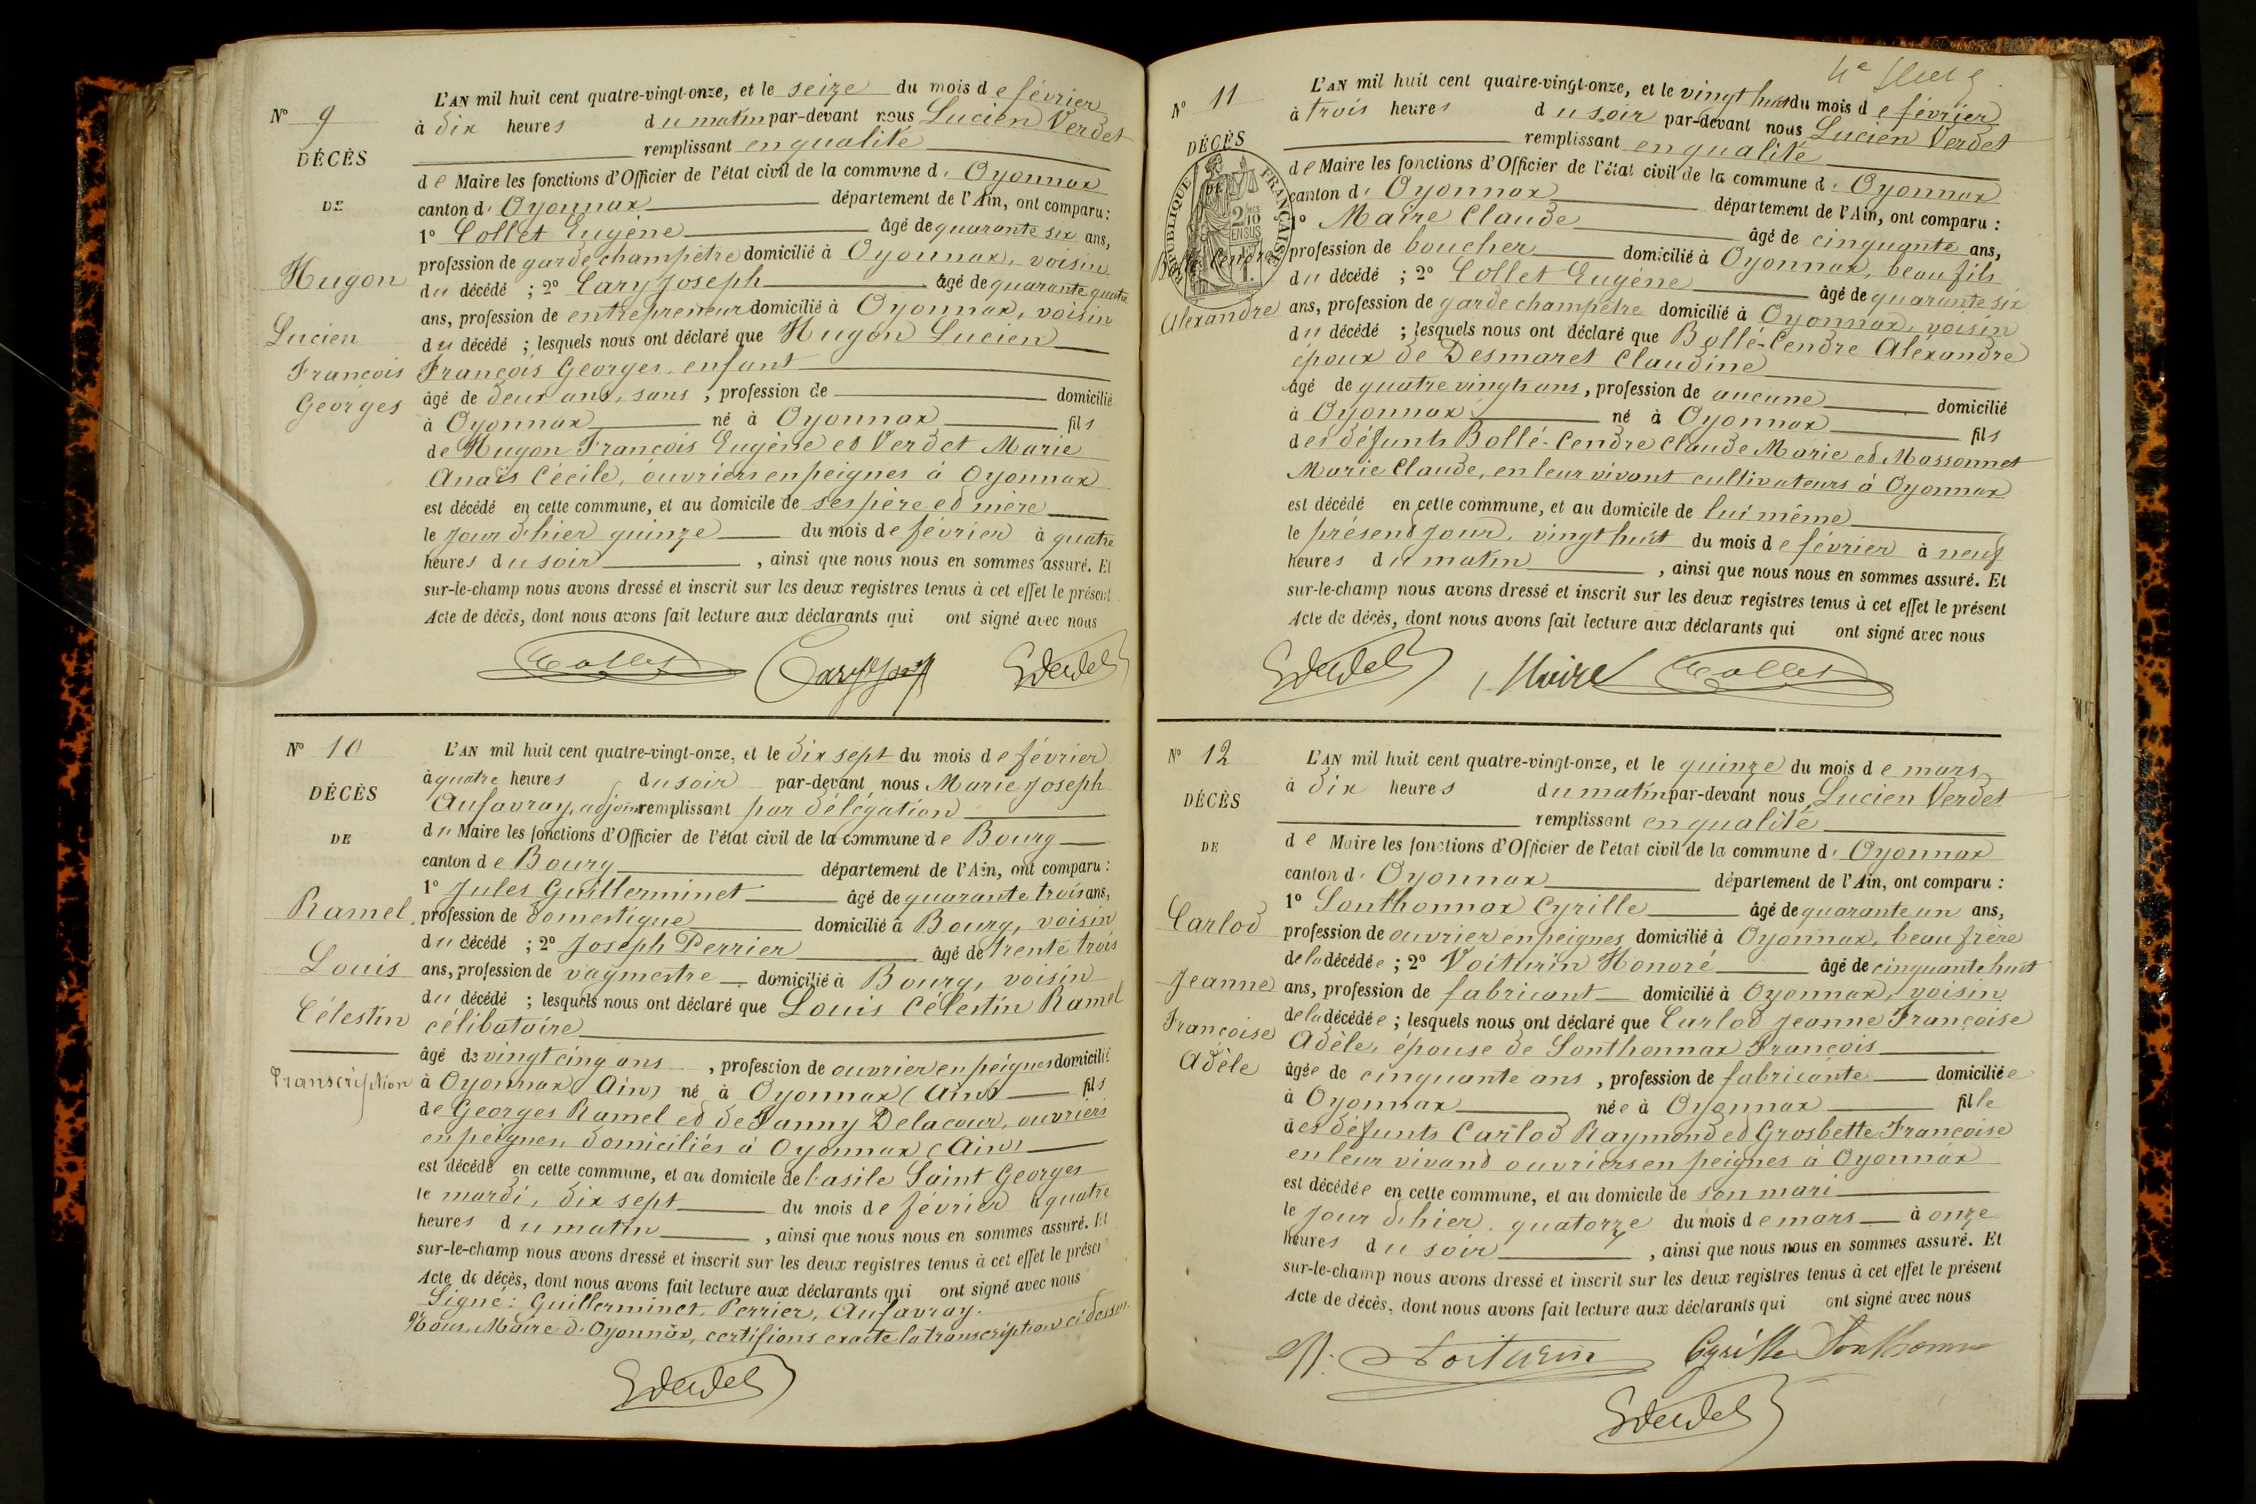 N° 9
DÉCÈS
DE
Hugon
Lucien
François
Georges
L'AN mil huit cent quatre-vingt-onze, et le seize du mois de février
à dix heures du matin par-devant nous Lucien Verdet
remplissant en qualité
de Maire les fonctions d'Officier de l'état civil de la commune d' Oyonnax
canton d' Oyonnax département de l'Ain, ont comparu :
1° Collet Eugène âgé de quarante six ans,
profession de garde champêtre domicilié à Oyonnax, voisin
du décédé ; 2° Cary Joseph âgé de quarante quatre
ans, profession de entrepreneur domicilié à Oyonnax, voisin
du décédé ; lesquels nous ont déclaré que Hugon Lucien
François Georges, enfant
âgé de deux ans, sans ; profession de domicilié
à Oyonnax né à Oyonnax fils
de Hugon François Eugène et Verdet Marie
Anaïs Cécile, ouvriers en peignes à Oyonnax
est décédé en cette commune, et au domicile de ses père et mère
le jour d'hier quinze du mois de février à quatre
heures du soir , ainsi que nous nous en sommes assuré. Et
sur-le-champ nous avons dressé et inscrit sur les deux registres tenus à cet effet le présent
Acte de décès, dont nous avons fait lecture aux déclarants qui ont signé avec nous
Collet Cary Josph Verdet
N° 10
DÉCÈS
DE
Ramel
Louis
Célestin
Transcription
L'AN mil huit cent quatre-vingt-onze, et le dix sept du mois de février
à quatre heures du soir par-devant nous Marie Joseph
Aufavray, adjoint remplissant par délégation
du Maire les fonctions d'Officier de l'état civil de la commune de Bourg
canton de Bourg département de l'Ain, ont comparu :
1° Jules Guillerminet âgé de quarante trois ans,
profession de domestique domicilié à Bourg, voisin
du décédé ; 2° Joseph Perrier âgé de trente trois
ans, profession de vagmestre domicilié à Bourg, voisin
du décédé ; lesquels nous ont déclaré que Louis Célestin Ramel
célibataire
âgé de vingt cinq ans , profession de ouvrier en peignes domicilié
à Oyonnax (Ain) né à Oyonnax (Ain) fils
de Georges Ramel et de Fanny Delacour, ouvriers
en peignes, domiciliés à Oyonnax (Ain)
est décédé en cette commune, et au domicile de l'asile Saint Georges
le mardi, dix sept du mois de février à quatre
heures du matin , ainsi que nous nous en sommes assuré. Et
sur-le-champ nous avons dressé et inscrit sur les deux registres tenus à cet effet le présen
Acte de décès, dont nous avons fait lecture aux déclarants qui ont signé avec nous
Signé : Guillerminet, Perrier, Aufavray.
Nous, Maire d'Oyonnax, certifions exacte la transcription ci dessus.
Verdet
N° 11
DÉCÈS
RÉPUBLIQUE FRANÇAISE
2/10 EN SUS
Bollé-Cendre
Alexandre
L'AN mil huit cent quatre-vingt-onze, et le vingt huit du mois de février
à trois heures du soir par-devant nous Lucien Verdet
remplissant en qualité
de Maire les fonctions d'Officier de l'état civil de la commune d' Oyonnax
canton d' Oyonnax département de l'Ain, ont comparu :
1° Maire Claude âgé de cinquante ans,
profession de boucher domicilié à Oyonnax, beau fils
du décédé ; 2° Collet Eugène âgé de quarante six
ans, profession de garde champêtre domicilié à Oyonnax, voisin
du décédé ; lesquels nous ont déclaré que Bollé-Cendre Alexandre
époux de Desmaret Claudine
âgé de quatre vingts ans, profession de aucune domicilié
à Oyonnax né à Oyonnax fils
des défunts Bollé-Cendre Claude Marie et Massonnet
Marie Claude, en leur vivant cultivateurs à Oyonnax
est décédé en cette commune, et au domicile de lui même
le présent jour, vingt huit du mois de février à neuf
heures du matin , ainsi que nous nous en sommes assuré. Et
sur-le-champ nous avons dressé et inscrit sur les deux registres tenus à cet effet le présent
Acte de décès, dont nous avons fait lecture aux déclarants qui ont signé avec nous
Verdet Maire Collet
N° 12
DÉCÈS
DE
Carlod
Jeanne
Françoise
Adèle
L'AN mil huit cent quatre-vingt-onze, et le quinze du mois de mars
à dix heures du matin par-devant nous Lucien Verdet
remplissant en qualité
de Maire les fonctions d'Officier de l'état civil de la commune d' Oyonnax
canton d' Oyonnax département de l'Ain, ont comparu :
1° Sonthonnax Cyrille âgé de quarante un ans,
profession de ouvrier en peignes domicilié à Oyonnax, beau frère
de la décédée ; 2° Voiturin Honoré âgé de cinquante huit
ans, profession de fabricant domicilié à Oyonnax, voisin
de la décédée ; lesquels nous ont déclaré que Carlod Jeanne Françoise
Adèle, épouse de Sonthonnax François
âgée de cinquante ans , profession de fabricante domiciliée
à Oyonnax née à Oyonnax fille
des défunts Carlod Raymond et Grosbette Françoise
en leur vivant ouvriers en peignes à Oyonnax
est décédée en cette commune, et au domicile de son mari
le jour d'hier, quatorze du mois de mars à onze
heures du soir , ainsi que nous nous en sommes assuré. Et
sur-le-champ nous avons dressé et inscrit sur les deux registres tenus à cet effet le présent
Acte de décès, dont nous avons fait lecture aux déclarants qui ont signé avec nous
H. Voiturin Cyrille Sonthonnax
Verdet